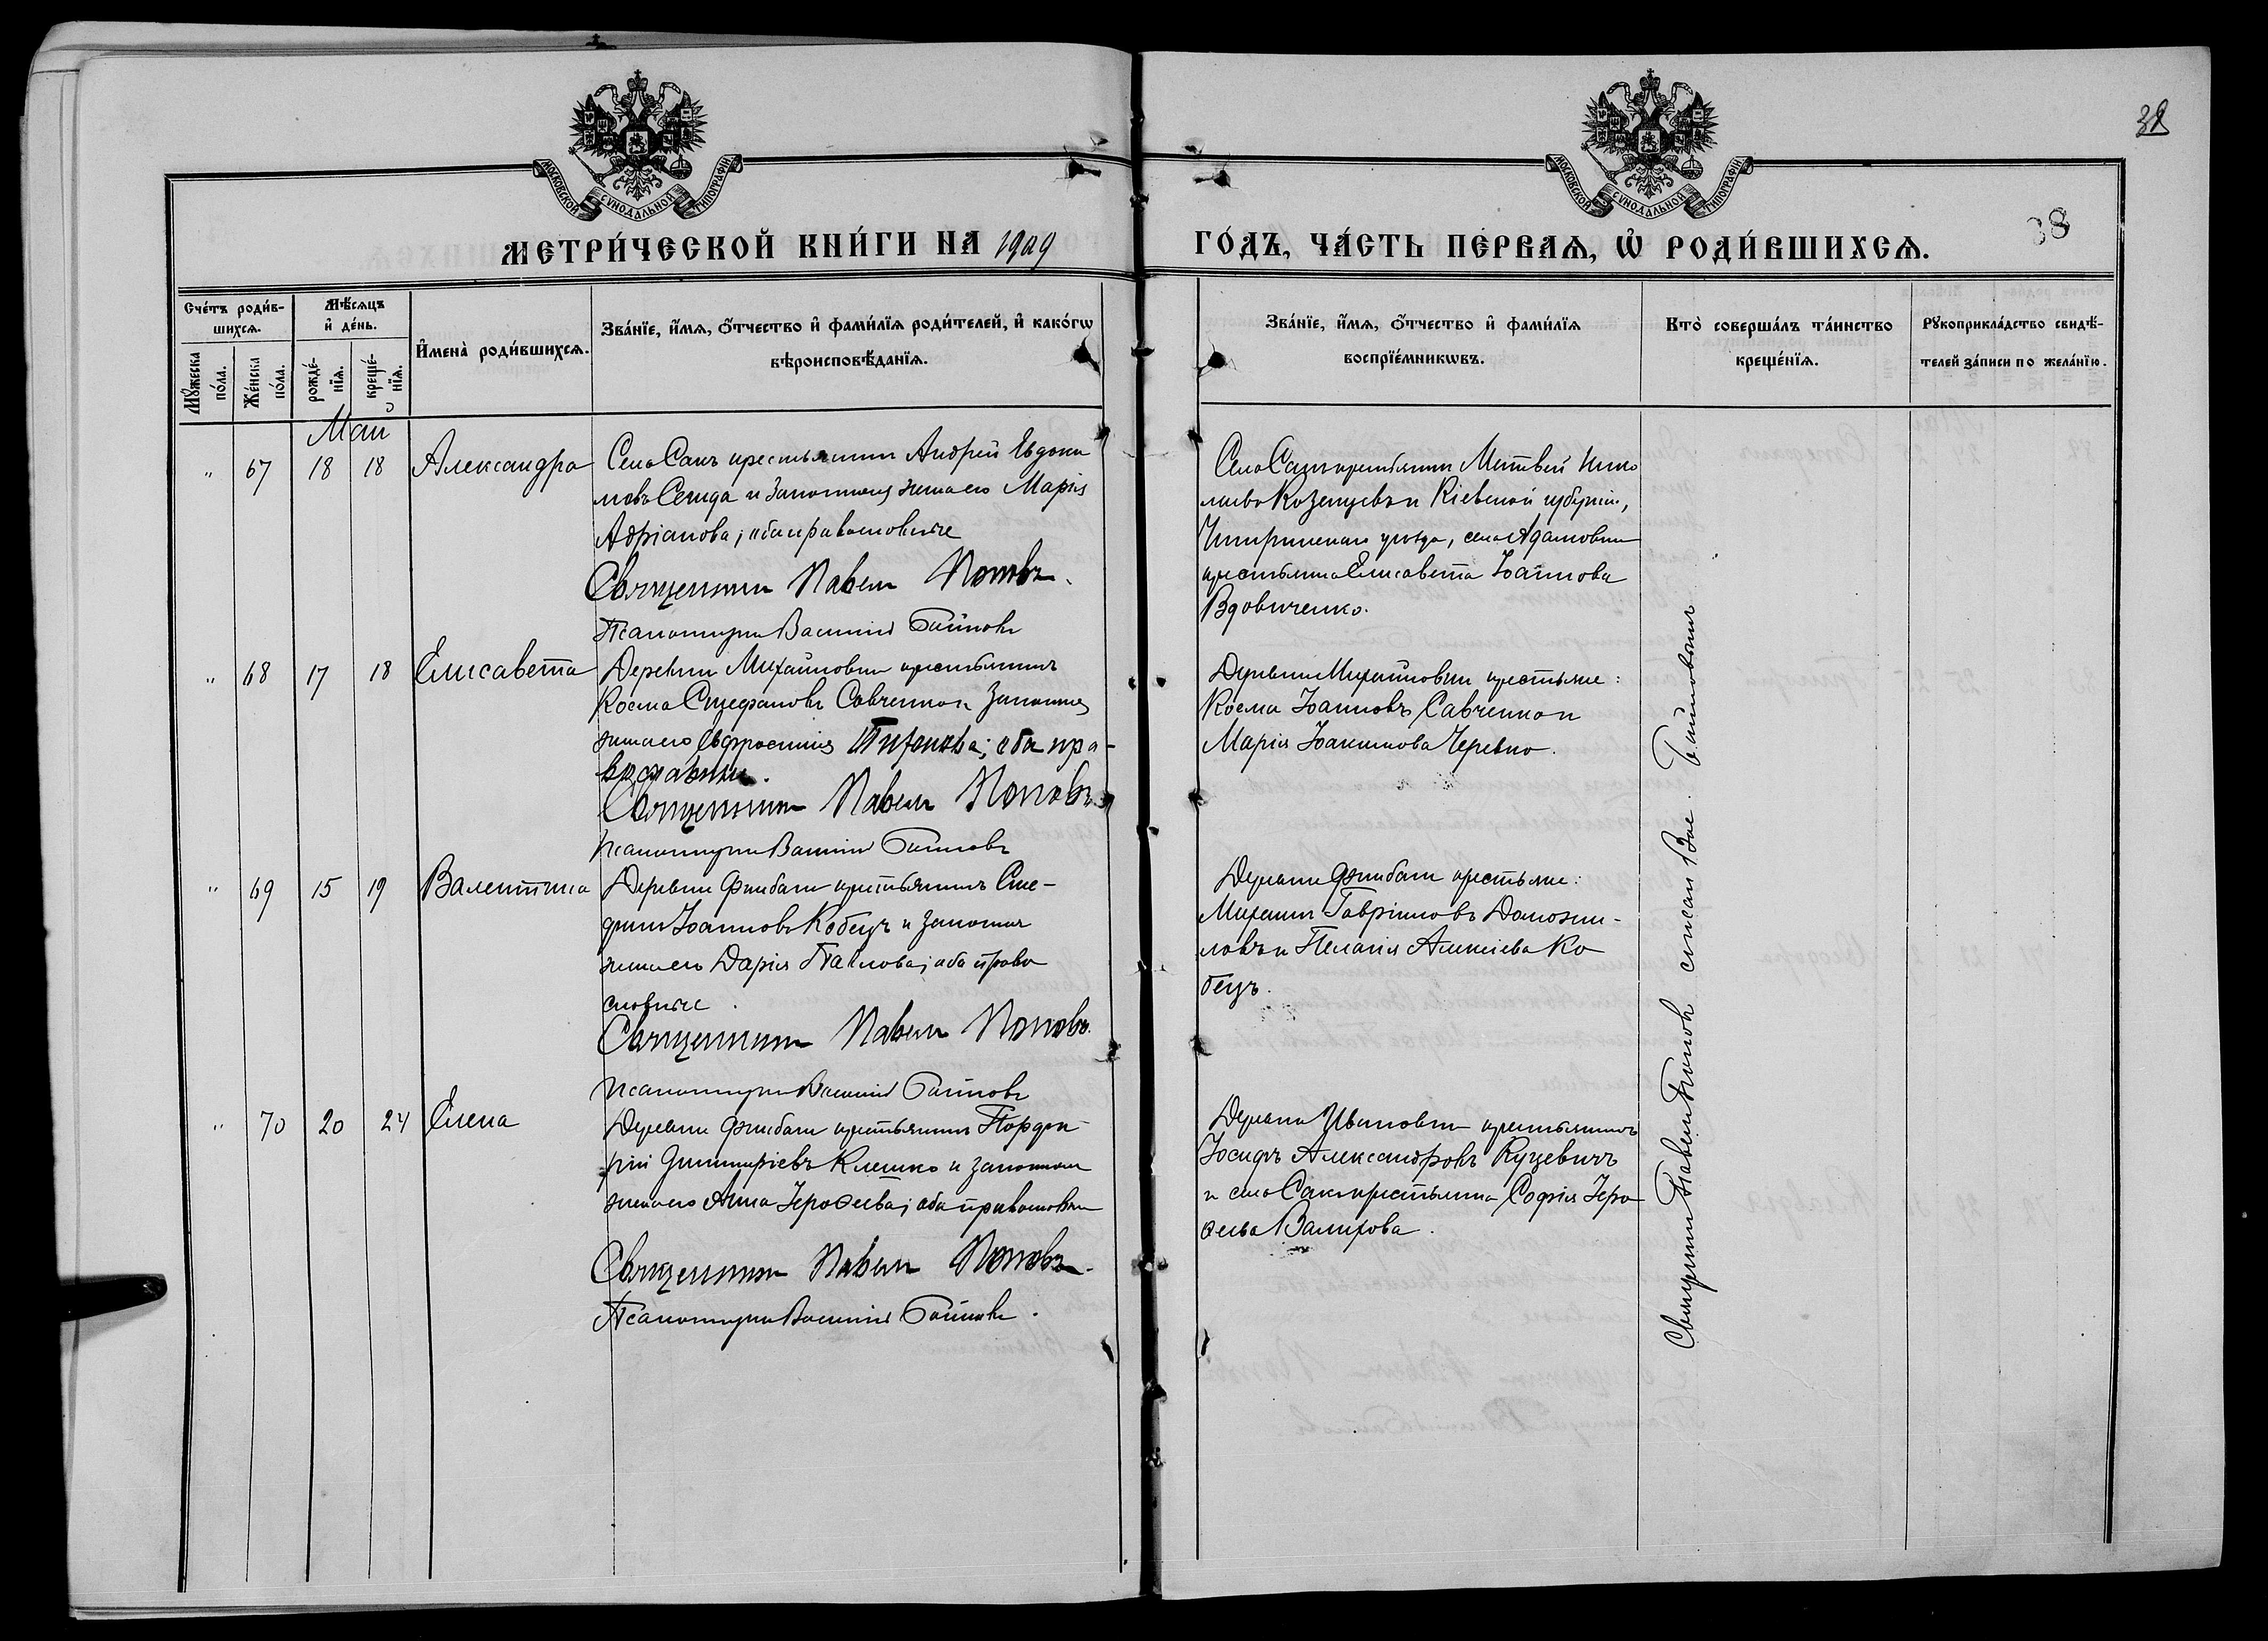 38
38
МОСКОВСКОЙ СУНОДАЛЬНОЙ ТИПОГРАФІИ
МОСКОВСКОЙ СУНОДАЛЬНОЙ ТИПОГРАФІИ
МЕТРИ́ЧЕСКОЙ КНИ́ГИ НА 1909
ГО́ДЪ, ЧА́СТЬ ПЕ́РВАѦ, Ѡ҆ РОДИ́ВШИХСѦ.
Сче́тъ роди́в-
шихсѧ.
Мѣ́сѧцъ
и҆ де́нь.
Мꙋ́жеска
по́ла.
Же́нска
по́ла.
рожде́-
нїѧ.
креще́-
нїѧ.
И҆мена̀ роди́вшихсѧ.
Зва́нїе, и҆́мѧ, ѻ҆́тчество и҆ фами́лїѧ роди́телей, и҆ како́гѡ
вѣроисповѣ́данїѧ.
Зва́нїе, и҆́мѧ, ѻ҆́тчество и҆ фами́лїѧ
воспрїе́мникѡвъ.
Кто̀ соверша́лъ та́инство
креще́нїѧ.
Рꙋкоприкла́дство свидѣ́-
телей за́писи по жела́нїю.
Май
" 67 18 18 Александра
Села Сакъ крестьянинъ Андрей Евдоки
мовъ и законная жена его Марія
Адріанова; оба православные
Священникъ Павелъ Поповъ.
Псаломщикъ Василій Байковъ
Села Сакъ крестьянинъ Матвей Нико
лаевъ и Кіевской губерніи,
Чигиринскаго уѣзда, села Адамовки
крестьянка Елисавета Іоаннова
Вдовиченко.
" 68 17 18 Елисавета
Деревни Михайловки крестьянинъ
Косма Стефановъ Савченко и законная
жена его Евфросинія Тихонова; оба пра-
вославные.
Священникъ Павелъ Поповъ
Псаломщикъ Василій Байковъ
Деревни Михайловки крестьяне:
Косма Іоанновъ Савченко и
Марія Іоакимова Черевко.
" 69 15 19 Валентина
Деревни крестьянинъ Сте-
фанъ Іоанновъ Кобецъ и законная
жена его Дарія Павлова; оба право
славные.
Священникъ Павелъ Поповъ.
Псаломщикъ Василій Байковъ
Деревни крестьяне:
Михаилъ Гавріиловъ
ловъ и Пелагія Алексіева Ко
бецъ.
" 70 20 24 Елена
Деревни крестьянинъ Порфи
рій Димитріевъ Клешко и законная
жена его Анна Іероѳеева; оба православны
Священникъ Павелъ Поповъ.
Псаломщикъ Василій Байковъ.
Деревни Ивановки крестьянинъ
Іосифъ Александровъ Куцевичъ
и села Сакъ крестьянка Софія Іеро
ѳеева Валихова.
Священникъ Павелъ Поповъ с псал. Вас. Байковымъ